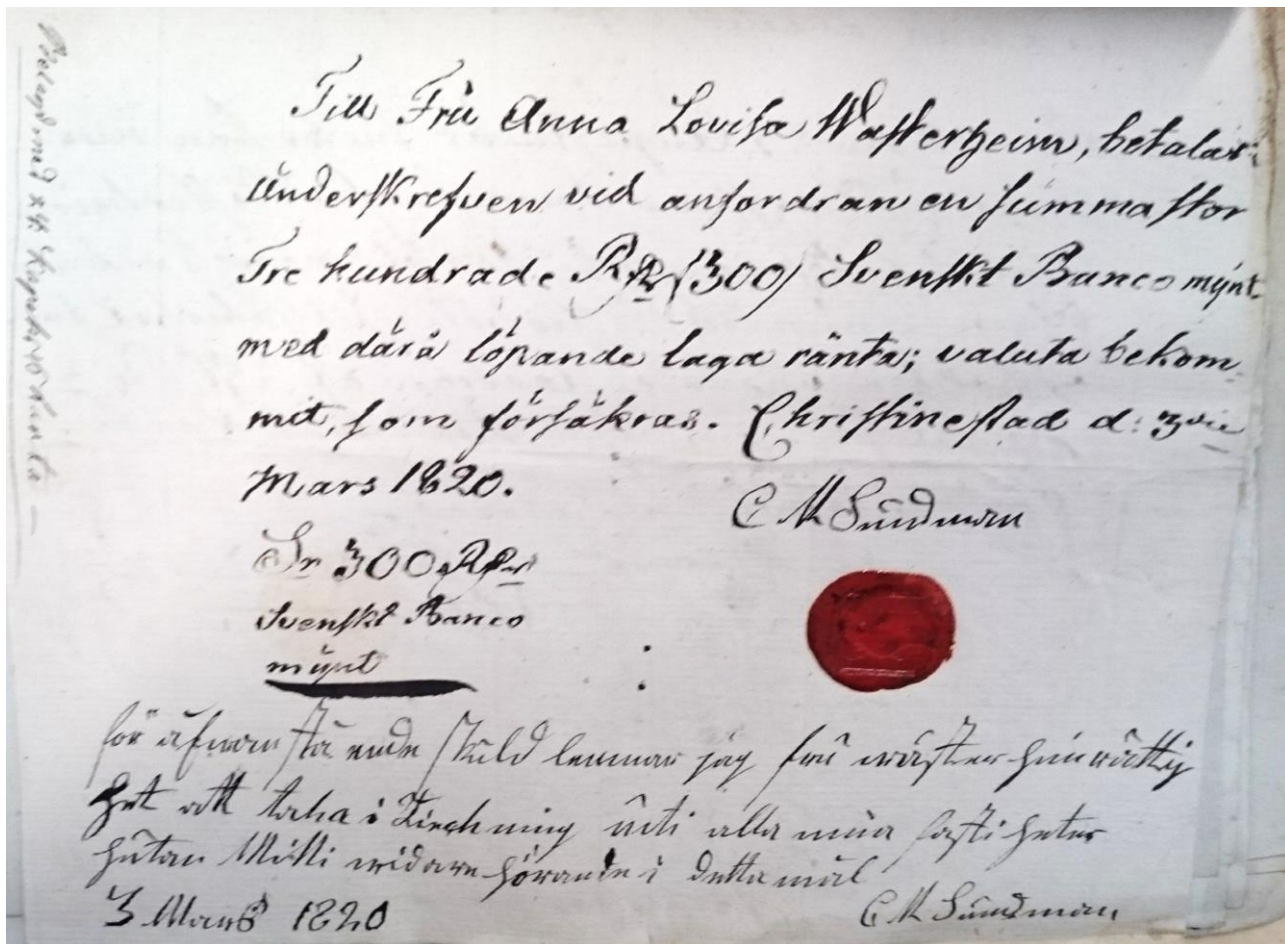 Till Fru Anna Lovisa Wasterheim, betalar
Underskrefven vid anfordran en summa stor
Tre hundrade Rdr (300) Svenskt Banco mynt
med därå löpande laga ränta; valuta bekom
mit, som försäkras. Christinestad d: 3die
Mars 1820.
C M Sundman
Sr 300 Rdr
Svenskt Banco
mynt
för äfvan stå ende skuld lemnar jag fru wästerheim rättig
het att taka i Teckning uti alla mina fastiheter
hutan Mitt widare hörande i detta mål
3 Mars 1820
C M Sundman
Belagd med 24